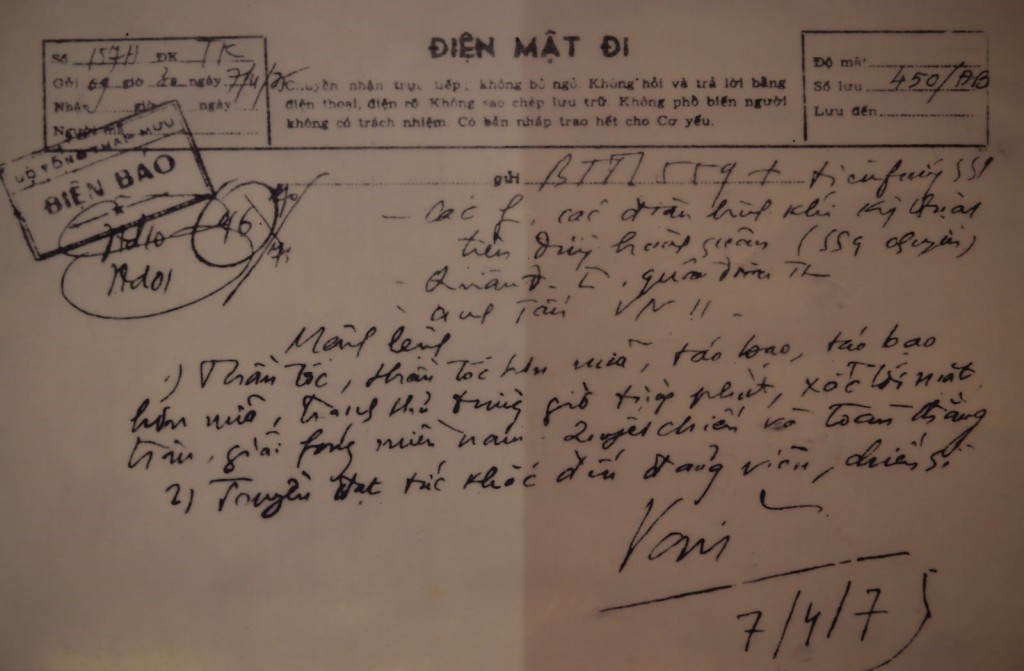 ĐIỆN MẬT ĐI
Số 157H ĐK TK
Gửi giờ ngày 7/4/75
Nhận giờ ngày
Người mã
Chuyển nhận trực tiếp, không bỏ ngỏ. Không hỏi và trả lời bằng
điện thoại, điện rõ. Không sao chép lưu trữ. Không phổ biến người
không có trách nhiệm. Có bản nháp trao hết cho Cơ yếu.
Độ mật
Số lưu 450/ĐB
Lưu đến
BỘ TỔNG THAM MƯU
ĐIỆN BÁO
46
gửi BTTL 559 +
- Các f, các binh khí kỹ thuật
tiến quân (559 chuyển)
- Quân đ. I, quân đoàn
VN !!
Mệnh lệnh
1) Thần tốc, thần tốc hơn nữa, táo bạo, táo bạo
hơn nữa, tranh thủ từng giờ từng phút, xốc tới mặt
trận, giải fóng miền nam. Quyết chiến và toàn thắng
2) Truyền đạt tức khắc đến đảng viên, chiến sĩ
Văn
7/4/75